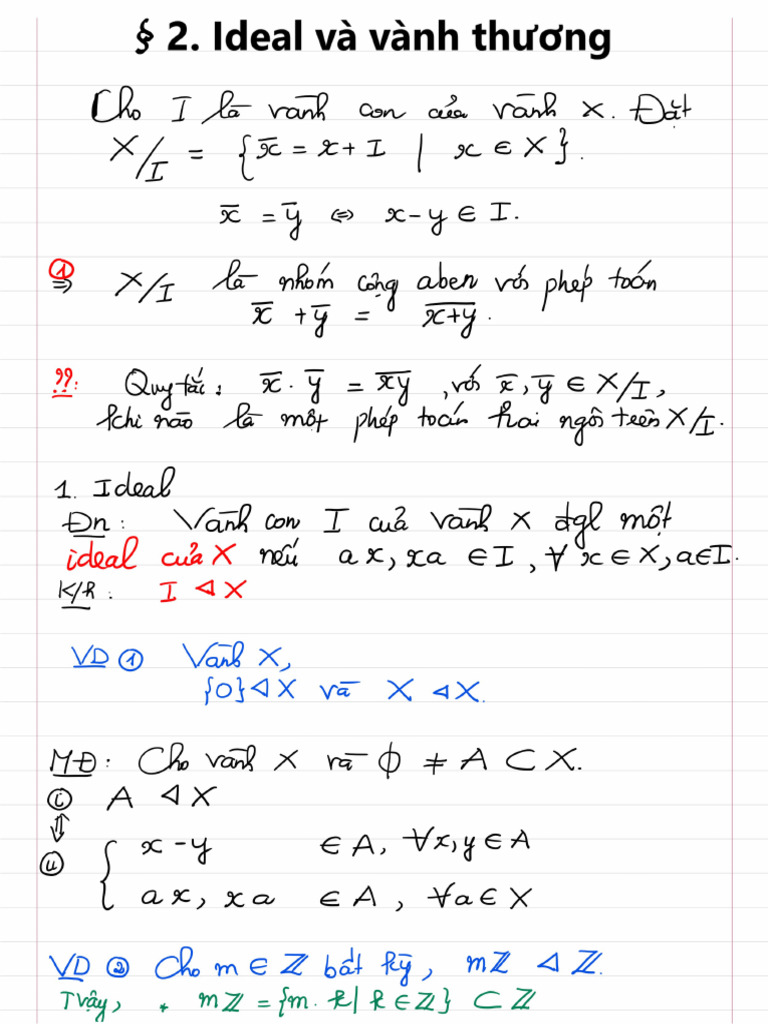 § 2. Ideal và vành thương
Cho I là vành con của vành X. Đặt
X/I = {x̅ = x + I | x ∈ X}.
x̅ = y̅ ⇔ x-y ∈ I.
① ⇒ X/I là nhóm cộng aben với phép toán
x̅ + y̅ = x̅+̅y̅.
??: Quy tắc: x̅ . y̅ = x̅y̅, với x̅, y̅ ∈ X/I,
khi nào là một phép toán hai ngôi trên X/I.
1. Ideal
Đn: Vành con I của vành X đgl một
ideal của X nếu ax, xa ∈ I, ∀ x ∈ X, a ∈ I.
K/h: I ⊲ X
VD ① Vành X,
{0} ⊲ X và X ⊲ X.
MĐ: Cho vành X và ϕ ≠ A ⊂ X.
ⓘ A ⊲ X
⇕
ⓘⓘ { x - y ∈ A, ∀x, y ∈ A
ax, xa ∈ A, ∀a ∈ X
VD ② Cho m ∈ ℤ bất kỳ, mℤ ⊲ ℤ.
Tvậy, * mℤ = {m. k | k ∈ ℤ} ⊂ ℤ